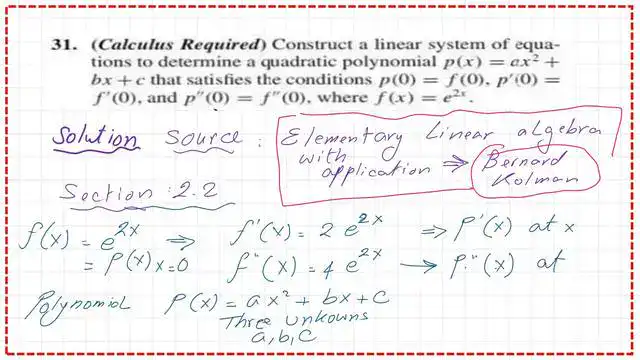 31. (Calculus Required) Construct a linear system of equa-
tions to determine a quadratic polynomial p(x) = ax² +
bx + c that satisfies the conditions p(0) = f(0), p′(0) =
f′(0), and p″(0) = f″(0), where f(x) = e²ˣ.
Solution Source : Elementary Linear algebra
with
application ⇒ Bernard
Kolman
Section: 2.2
f(x) = e²ˣ ⇒ f'(x) = 2 e²ˣ ⇒ p'(x) at x
= p(x) x=0 f"(x) = 4 e²ˣ → p"(x) at
Polynomial p(x) = a x² + bx + c
Three unkowns
a, b, c